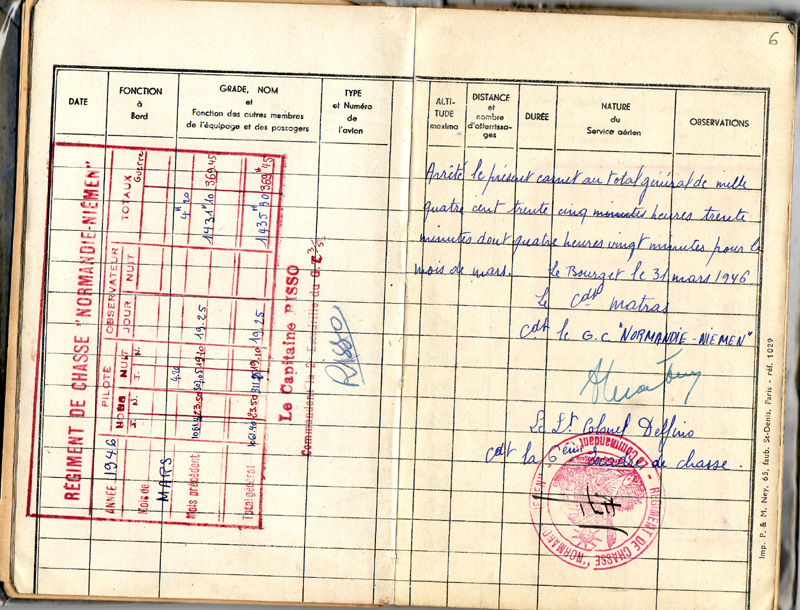 6
DATE
FONCTION
à
Bord
GRADE, NOM
et
Fonction des autres membres
de l'équipage et des passagers
TYPE
et Numéro
de
l'avion
ALTI-
TUDE
maxima
DISTANCE
et
nombre
d'atterrissa-
ges
DURÉE
NATURE
du
Service aérien
OBSERVATIONS
REGIMENT DE CHASSE "NORMANDIE-NIEMEN"
ANNÉE 1946
PILOTE
OBSERVATEUR
TOTAUX
Guerre
JOUR
NUIT
NUIT
J. N.
J. N.
Mois de
MARS
4.20
4H20
Mois précédent
19.25
1431H10
369.45
Total général
19.25
1435H30
369H45
Le Capitaine RISSO
Risso
Arrêté le présent carnet au total général de mille
quatre cent trente cinq minutes heures trente
minutes dont quatre heures vingt minutes pour le
mois de mars.
Le Bourget le 31 mars 1946
Le Cdt Matras
Cdt le G.C. "NORMANDIE-NIEMEN"
Le Lt Colonel Delfino
Cdt la 6ème Escadre de chasse.
REGIMENT DE CHASSE "NORMANDIE
Le Commandant
Imp. P. & M. Ney, 65, faub. St-Denis, Paris - réf. 1029